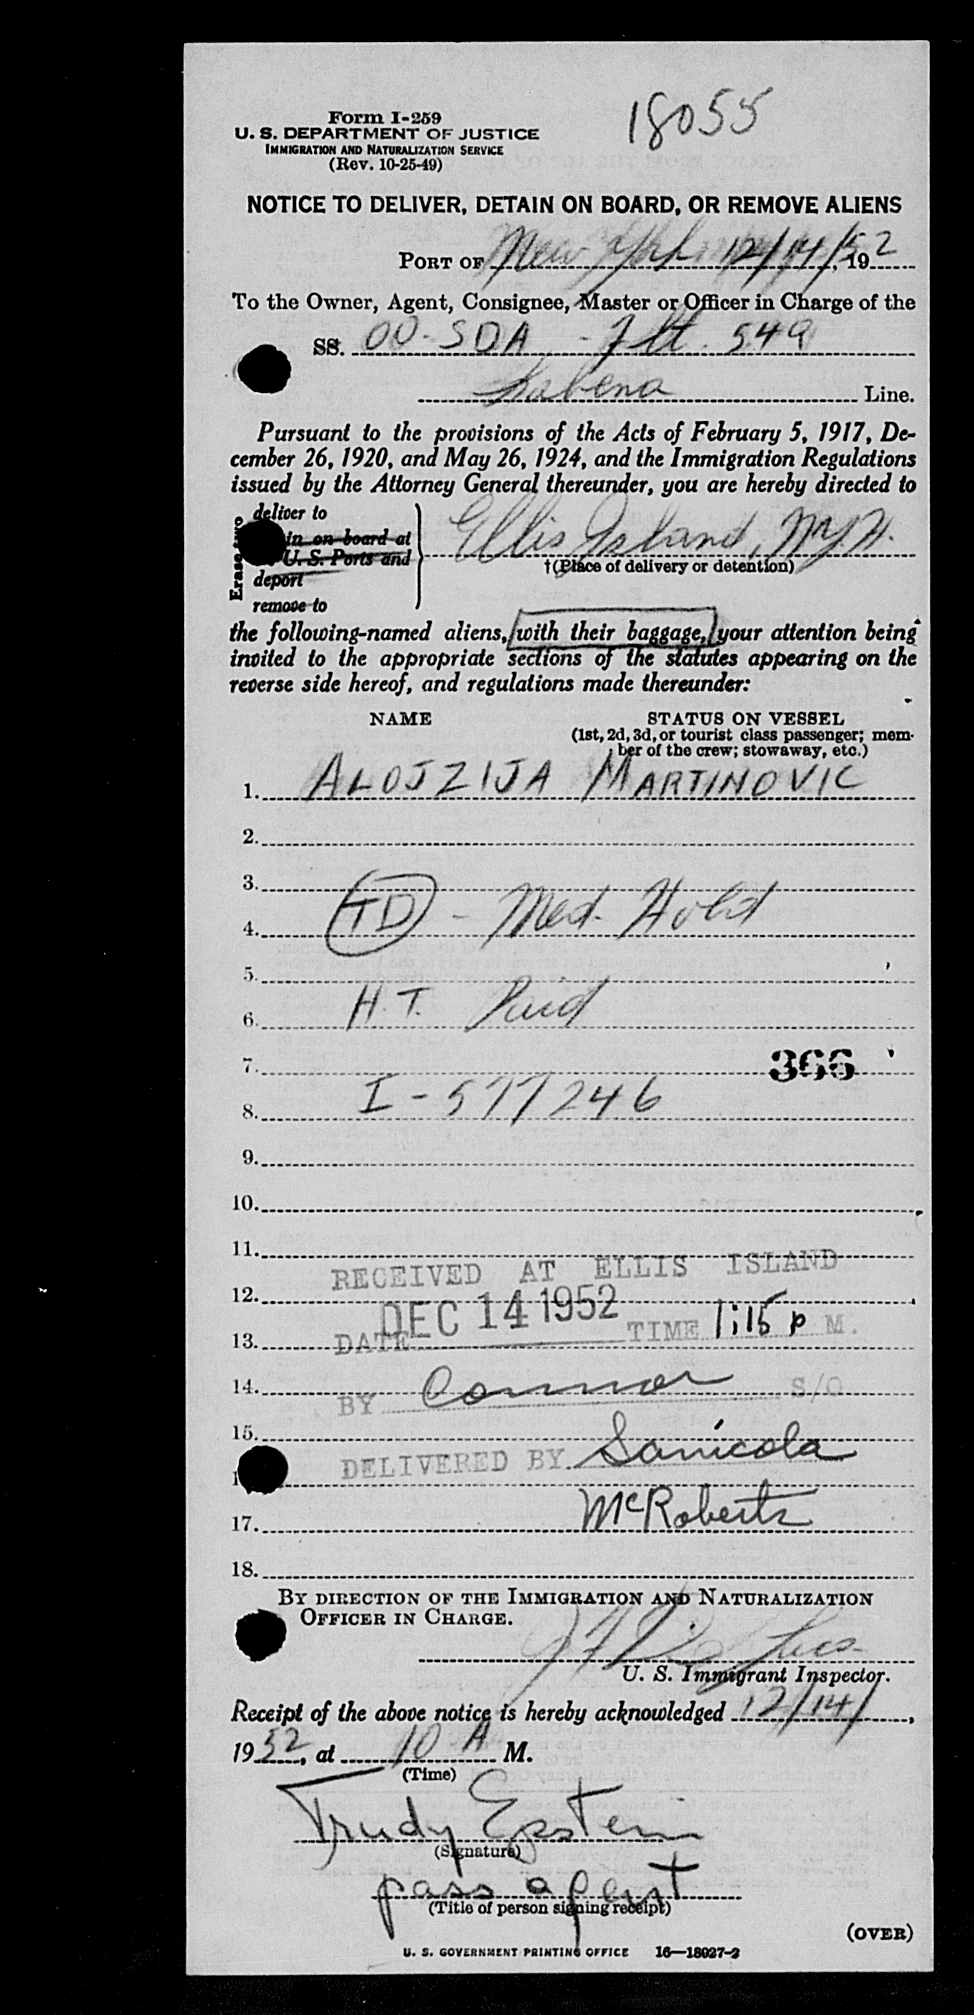 18055
Form I-259
U. S. DEPARTMENT OF JUSTICE
IMMIGRATION AND NATURALIZATION SERVICE
(Rev. 10-25-49)
NOTICE TO DELIVER, DETAIN ON BOARD, OR REMOVE ALIENS
PORT OF New York 12/14/, 1952
To the Owner, Agent, Consignee, Master or Officer in Charge of the
SS. OO-SDA - Flt. 549
Sabena Line.
Pursuant to the provisions of the Acts of February 5, 1917, De-
cember 26, 1920, and May 26, 1924, and the Immigration Regulations
issued by the Attorney General thereunder, you are hereby directed to
Erase two
deliver to
in on board at
U. S. Ports and
deport
remove to
Ellis Island, N.Y.H.
†(Place of delivery or detention)
the following-named aliens, with their baggage, your attention being
invited to the appropriate sections of the statutes appearing on the
reverse side hereof, and regulations made thereunder:
NAME STATUS ON VESSEL
(1st, 2d, 3d, or tourist class passenger; mem-
ber of the crew; stowaway, etc.)
1. ALOJZIJA MARTINOVIC
2.
3.
4. TD - Med. Hold
5.
6. H.T. Paid
7. 366
8. I-577246
9.
10.
11.
RECEIVED AT ELLIS ISLAND
12.
13. DATE DEC 14 1952 TIME 1:15 P M.
14.
BY Connor S/O
15.
DELIVERED BY Sanicola
17. McRoberts
18.
BY DIRECTION OF THE IMMIGRATION AND NATURALIZATION
OFFICER IN CHARGE.
U. S. Immigrant Inspector.
Receipt of the above notice is hereby acknowledged 12/14/,
1952, at 10 A M.
(Time)
Trudy Epstein
(Signature)
pass agent
(Title of person signing receipt)
(OVER)
U. S. GOVERNMENT PRINTING OFFICE 16—18027-2